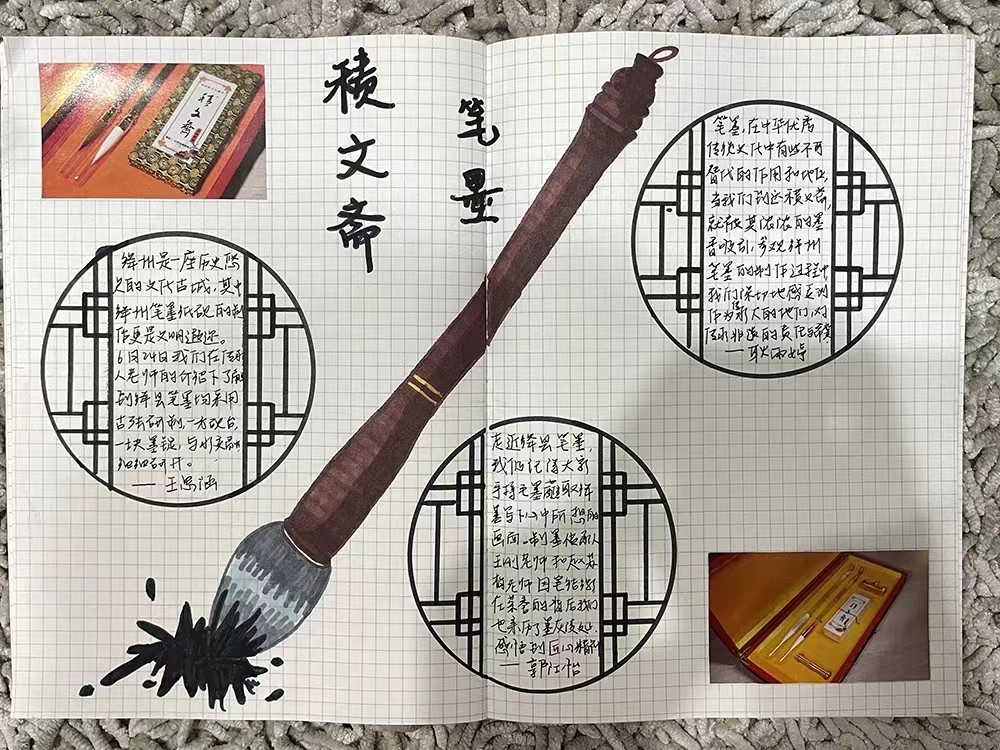 積文斋
笔墨
積文齋
绛州是一座历史悠
久的文化古城，其中
绛州笔墨纸砚的制
作更是文明遐迩。
6月24日我们在传承
人老师的介绍下了解
到绛县笔墨均采用
古法研制，一方砚台，
一块墨锭，与水交融
细细研开。
——王思涵
笔墨，在中华优秀
传统文化中有些不可
替代的作用和地位，
当我们到达積文斋，
就被其浓浓的墨
香吸引，参观绛州
笔墨的制作过程中，
我们深切地感受到
作为传承人的他们，对
传承非遗的责任
——耿雨婷
走近绛县笔墨，
我们记得大家
手持毛墨蘸取绛
墨写下心中所想的
画面。制墨传承人
王刚老师和赵苏
老师因笔结缘
在荣誉的背后我们
也亲历了墨灰
感悟到匠心精神
——郭江怡